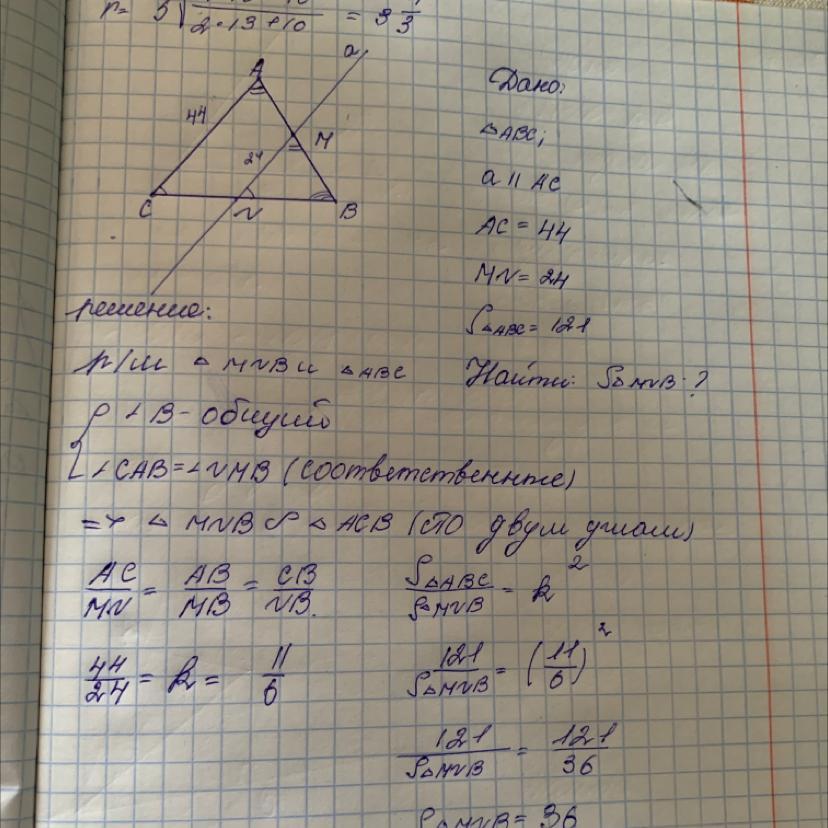 2·13+10 = 3 1/3
a
A
44
M
24
C
N
B
Дано:
△ABC;
a || AC
AC = 44
MN = 24
S△ABC = 121
Найти: S△MNB-?
решение:
р/м △ MNB и △ABC
{ ∠B - общий
∠CAB = ∠NMB (соответственные)
=> △ MNB ∽ △ ACB (по двум углам)
AC/MN = AB/MB = CB/NB.
S△ABC/S△MNB = k²
44/24 = k = 11/6
121/S△MNB = (11/6)²
121/S△MNB = 121/36
S△MNB = 36